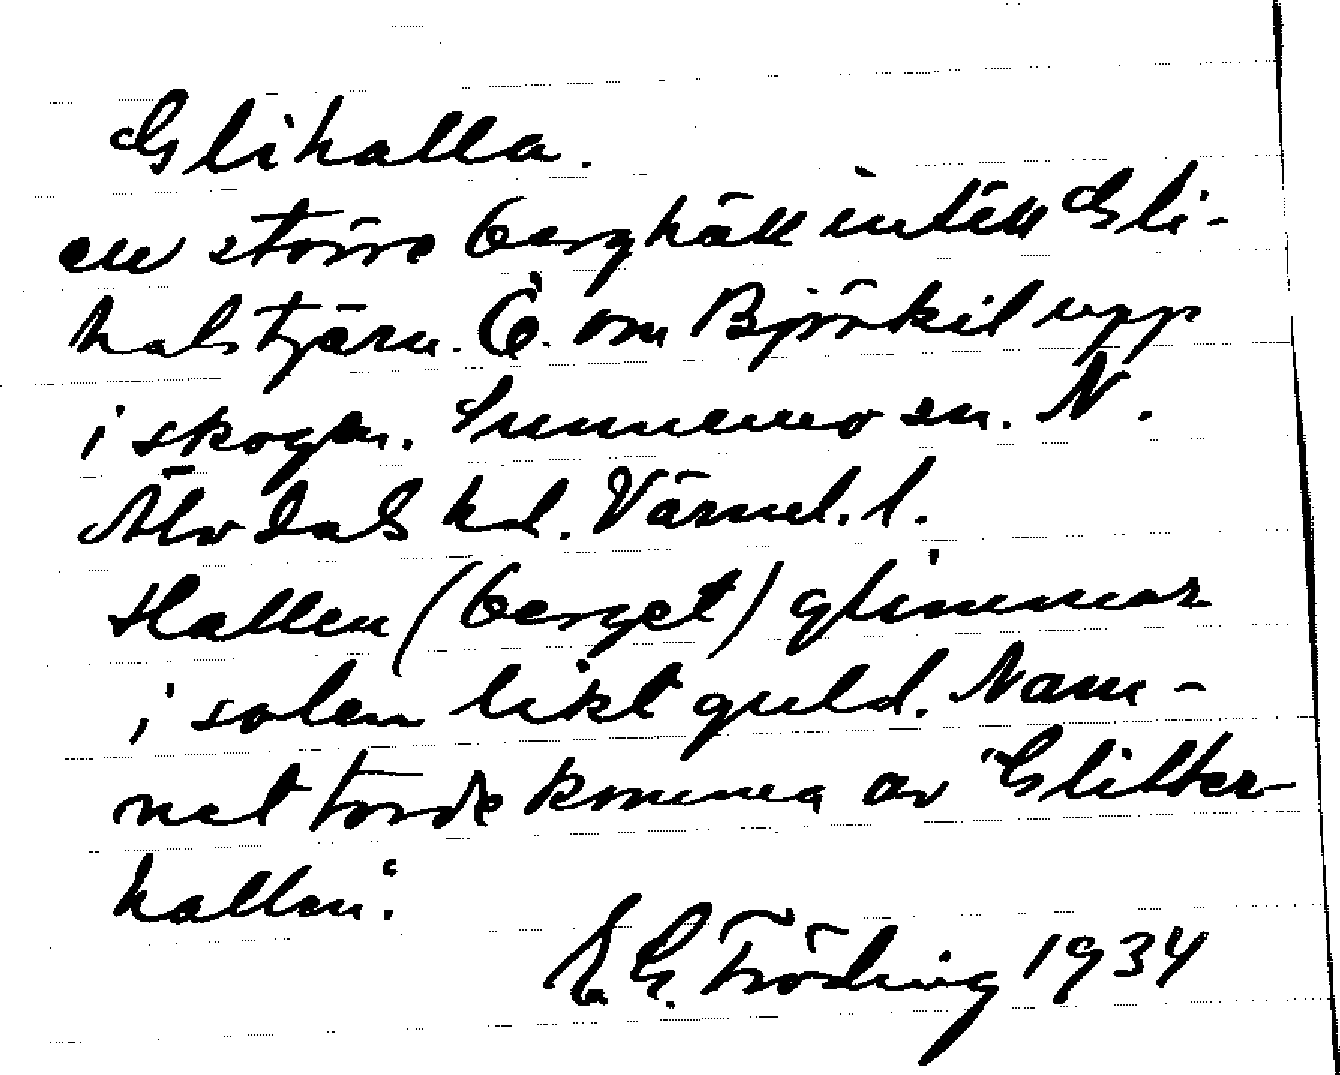 Glihalla.
en större berghäll intill Gli-
halstjärn. Ö. om Björkil upp
i skogen. Sunnemo sn. N.
Älvdals hd. Värml. l.
Hallen (berget) glimmar
i solen likt guld. Nam-
net torde komma av "Glitter-
hallen".
E. G. Fröding 1934